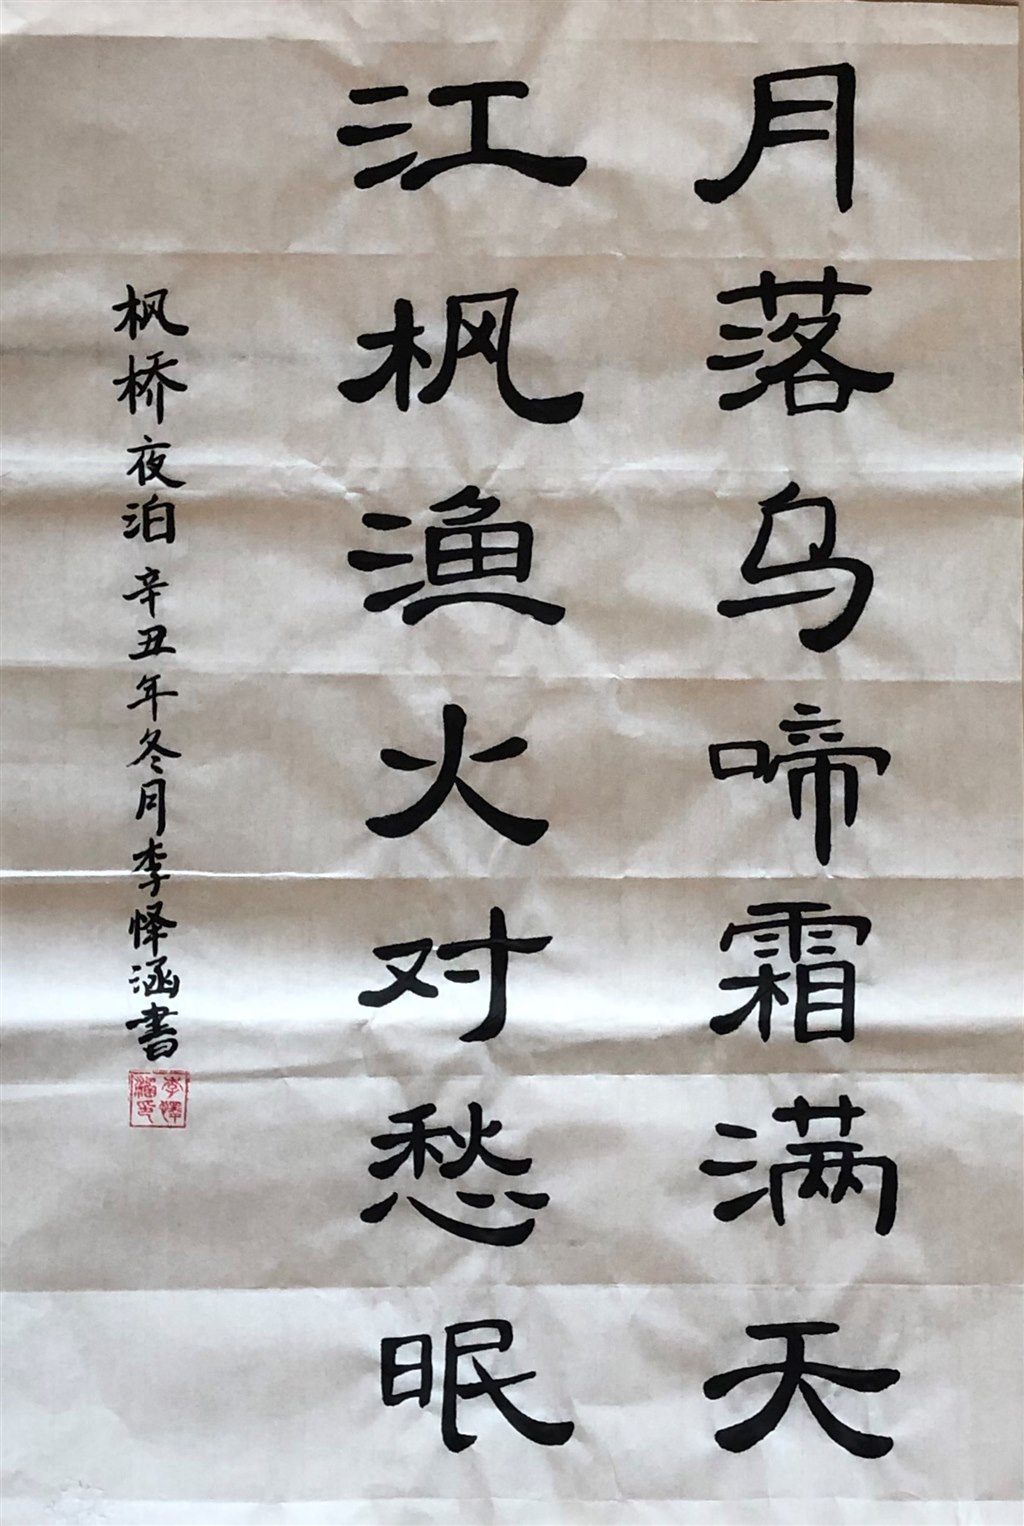 月落乌啼霜满天
江枫渔火对愁眠
枫桥夜泊 辛丑年冬月李怿涵書